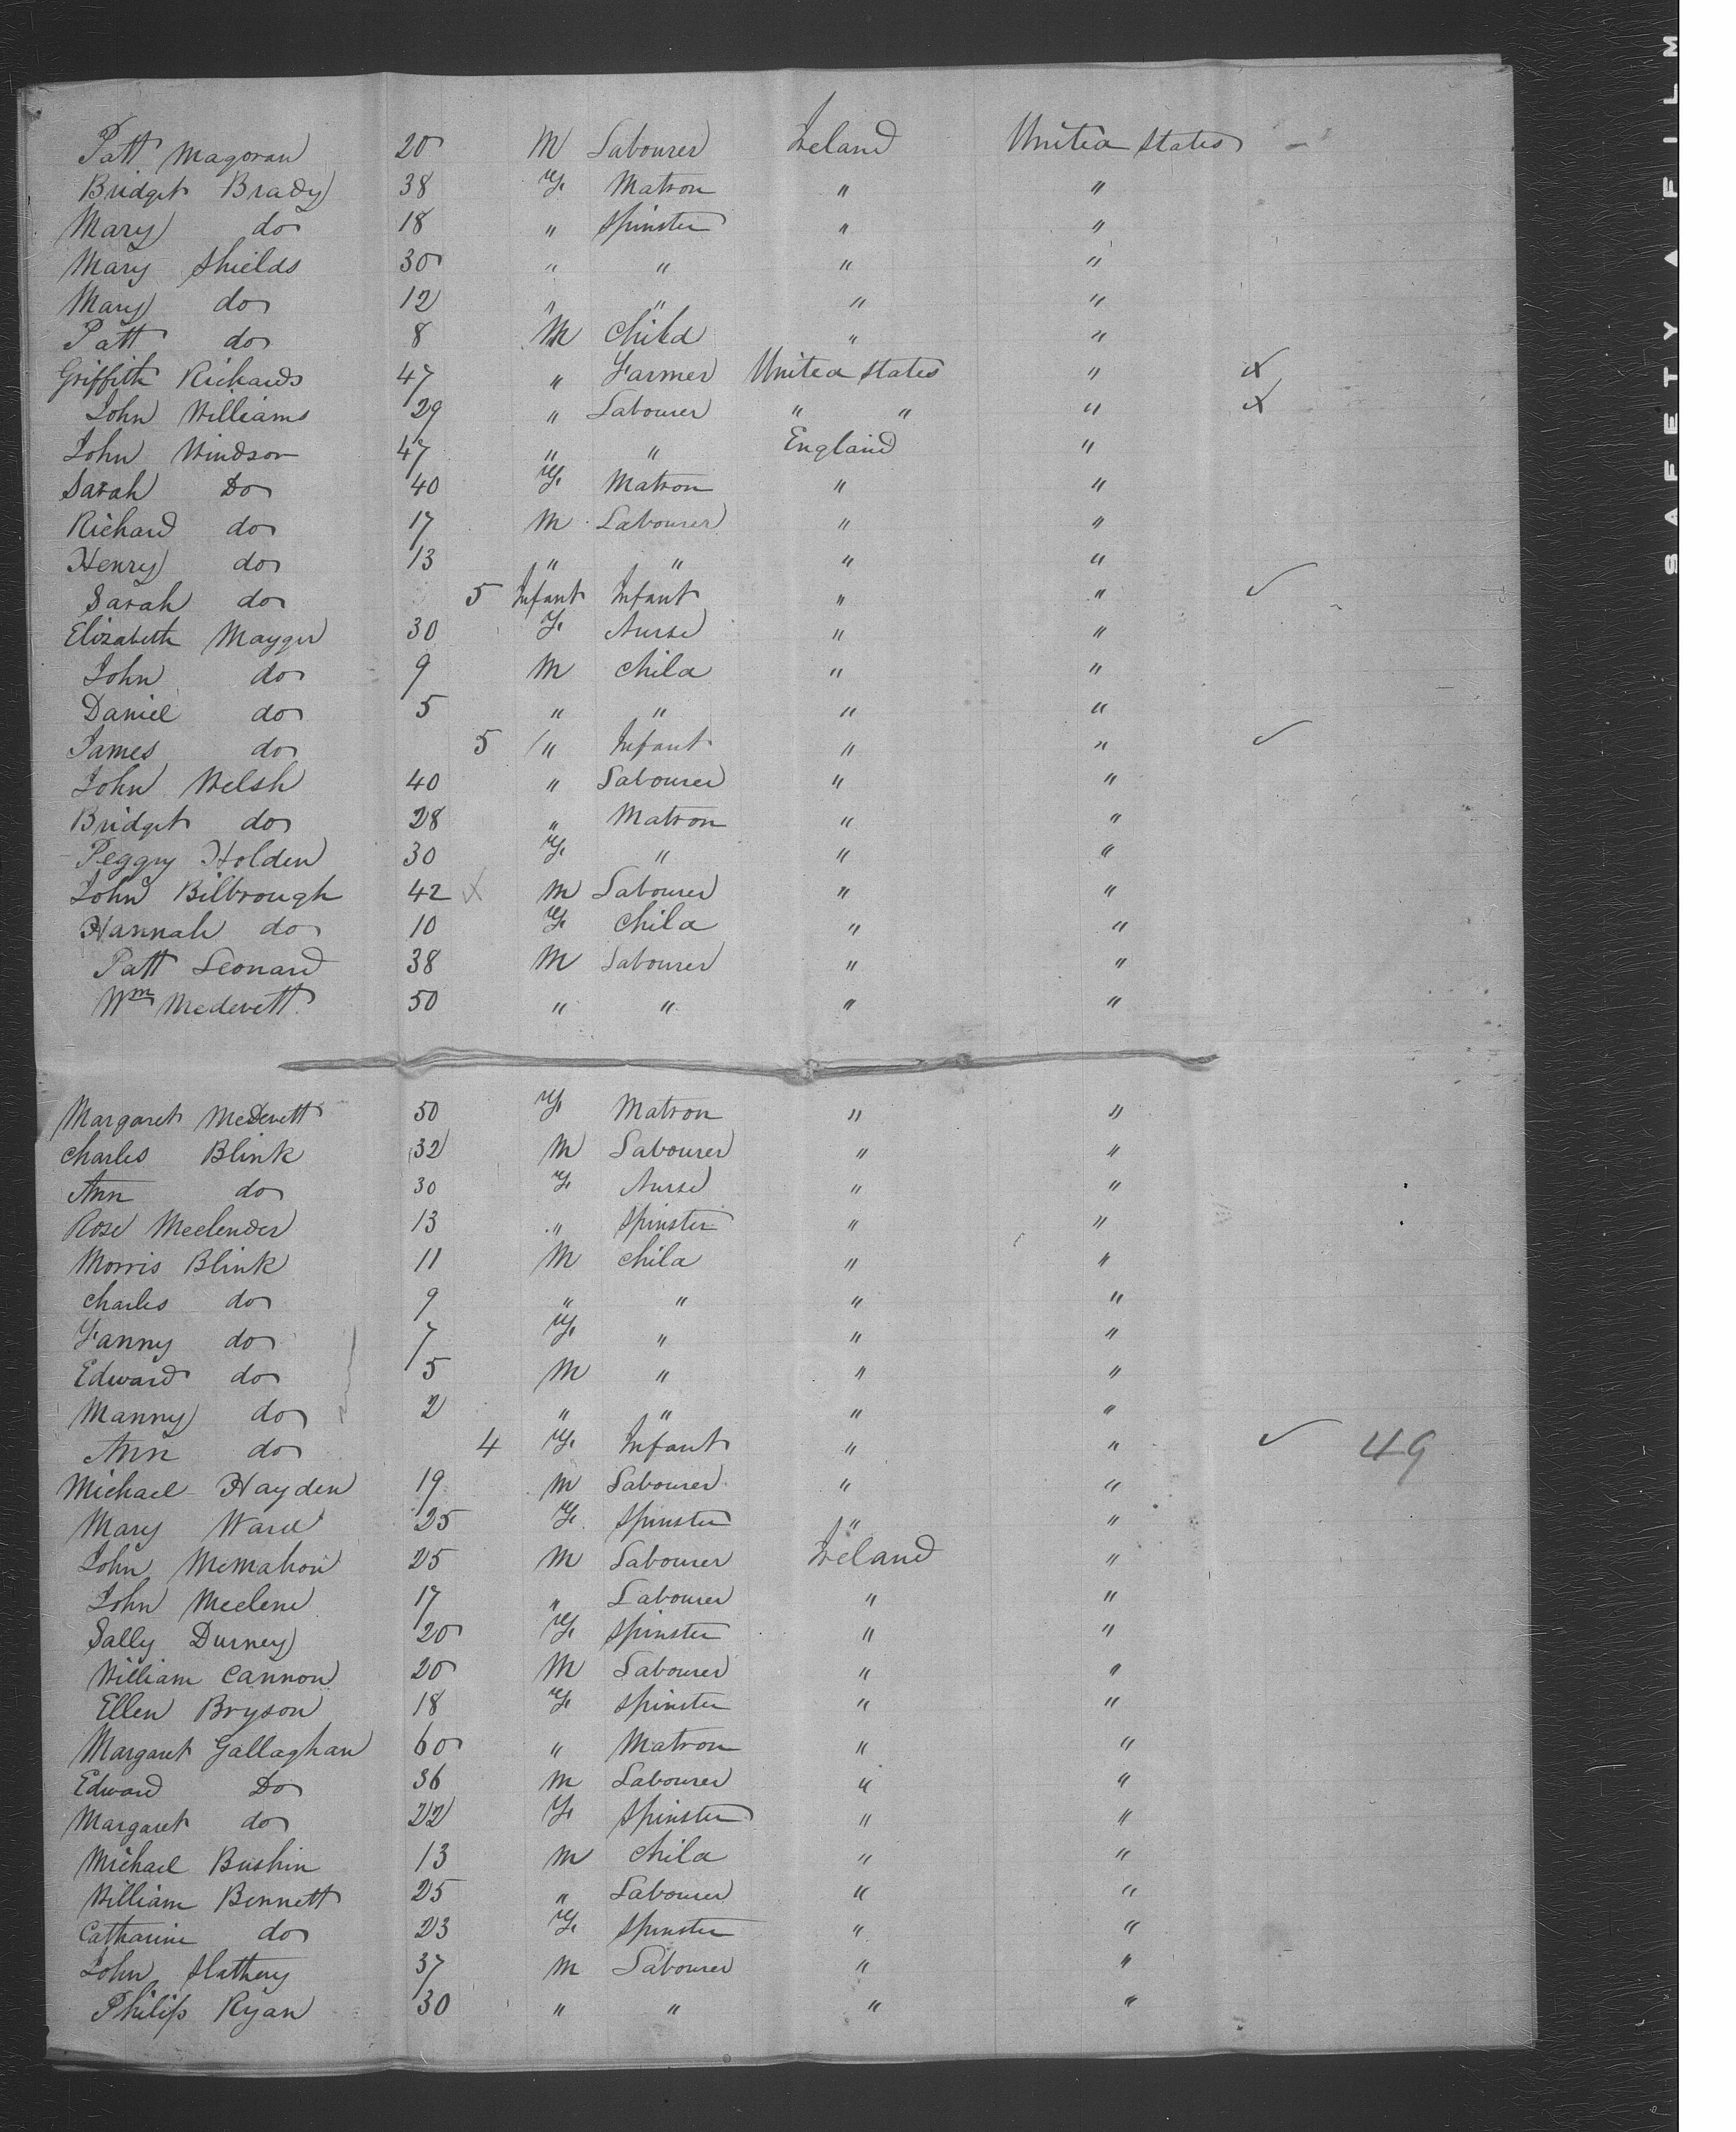 Patt Magoran 20 M Labourer Ireland United States -
Bridget Brady 38 F. Matron " "
Mary do 18 " Spinster " "
Mary Shields 30 " " " "
Mary do 12 " " " "
Patt do 8 M Child " "
Griffith Richards 47 " Farmer United States " X
John Williams 29 " Labourer " " " X
John Windson 47 " " England "
Sarah Do 40 F. Matron " "
Richard do 17 M Labourer " "
Henry do 13 " " " "
Sarah do 5 Infant Infant " " ✓
Elizabeth Mayger 30 F. Nurse " "
John do 9 M Child " "
Daniel do 5 " " " "
James do 5 " Infant " " ✓
John Welsh 40 " Labourer " "
Bridget do 28 " Matron " "
Peggy Holden 30 F. " " "
John Bilbrough 42 X M Labourer " "
Hannah do 10 F. Child " "
Patt Leonard 38 M Labourer " "
Wm McDevett 50 " " " "
Margaret McDevett 50 F. Matron " "
Charles Blink 32 M Labourer " "
Ann do 30 F. Nurse " "
Rose Meclender 13 " Spinster " "
Morris Blink 11 M Child " "
Charles do 9 " " " "
Fanny do 7 F. " " "
Edward do 5 M " " "
Manny do 2 " " " "
Ann do 4 F. Infant " " ✓ 49
Michael Hayden 19 M Labourer " "
Mary Ward 25 F. Spinster " "
John McMahon 25 M Labourer Ireland "
John Meclene 17 " Labourer " "
Sally Durney 20 F. Spinster " "
William Cannon 20 M Labourer " "
Ellen Bryson 18 F. Spinster " "
Margaret Gallaghan 60 " Matron " "
Edward Do 36 M Labourer " "
Margaret do 22 F. Spinster " "
Michael Bushin 13 M Child " "
William Bennett 25 " Labourer " "
Catharine do 23 F. Spinster " "
John Slathery 37 M Labourer " "
Philip Ryan 30 " " " "
SAFETY FILM